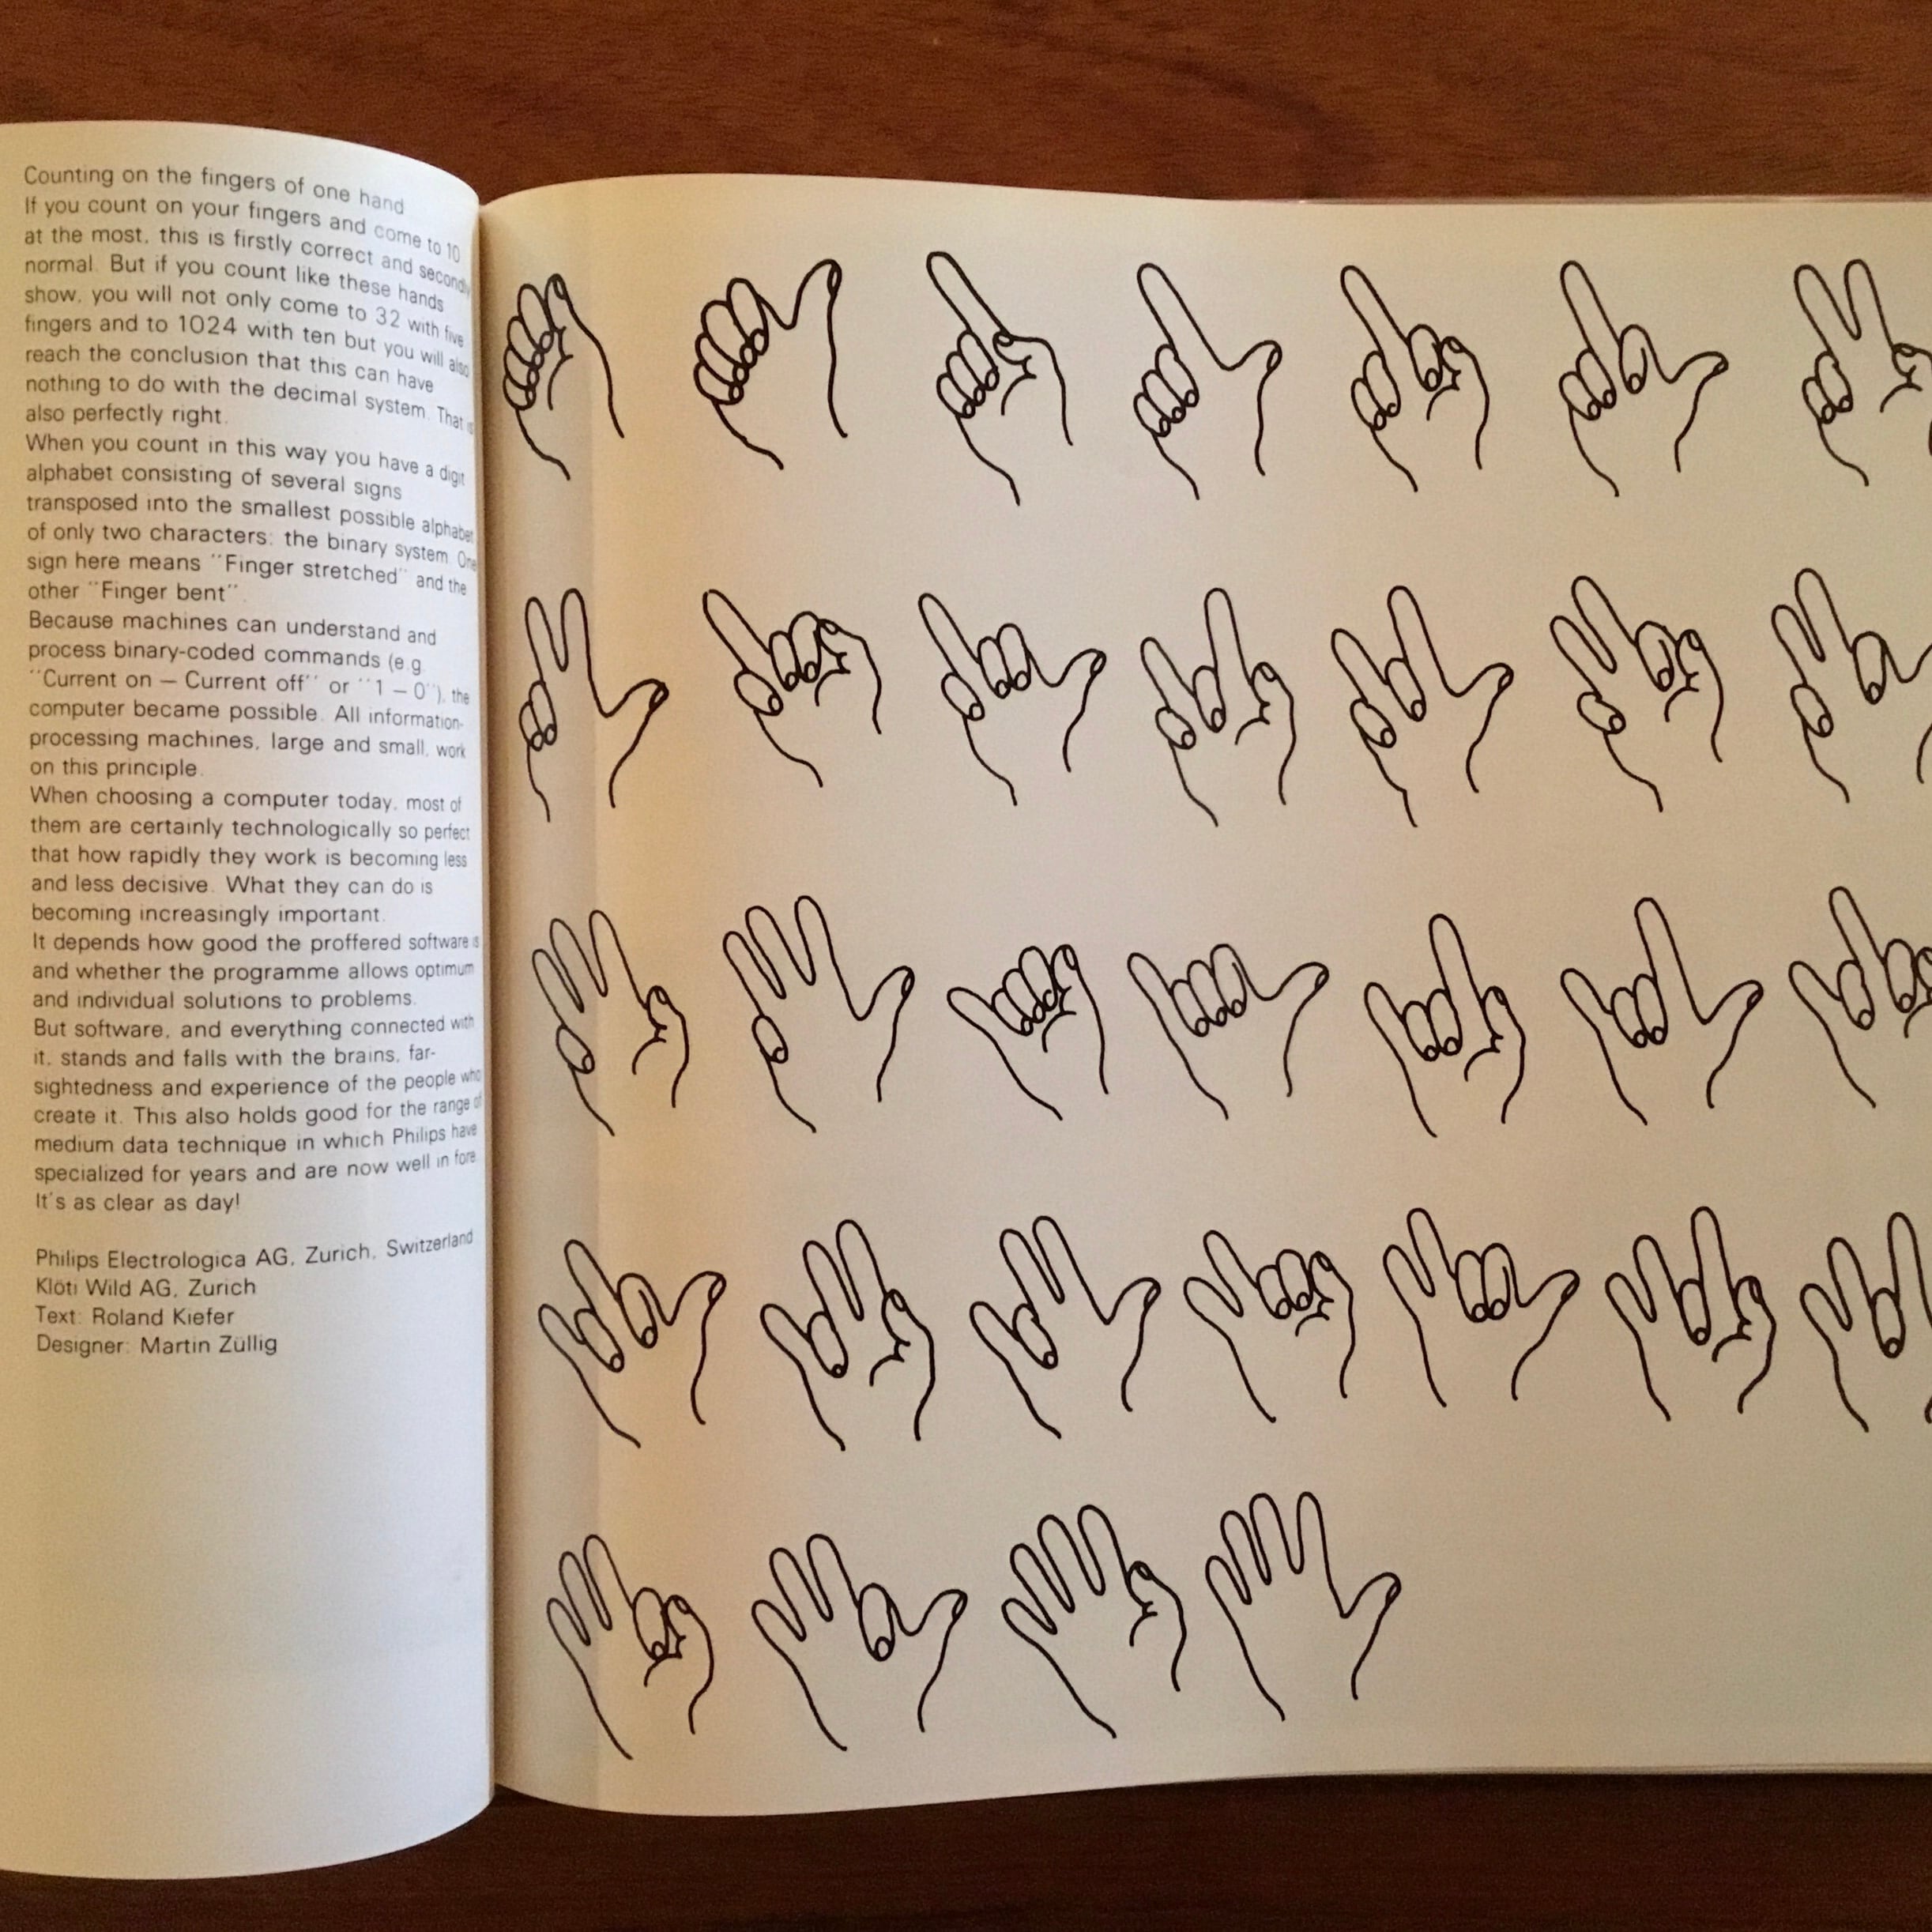 Counting on the fingers of one hand
If you count on your fingers and come to 10
at the most, this is firstly correct and secondly
normal. But if you count like these hands
show, you will not only come to 32 with five
fingers and to 1024 with ten but you will also
reach the conclusion that this can have
nothing to do with the decimal system. That is
also perfectly right.
When you count in this way you have a digit
alphabet consisting of several signs
transposed into the smallest possible alphabet
of only two characters: the binary system. One
sign here means "Finger stretched" and the
other "Finger bent".
Because machines can understand and
process binary-coded commands (e.g.
"Current on — Current off" or "1 — 0"), the
computer became possible. All information-
processing machines, large and small, work
on this principle.
When choosing a computer today, most of
them are certainly technologically so perfect
that how rapidly they work is becoming less
and less decisive. What they can do is
becoming increasingly important.
It depends how good the proffered software is
and whether the programme allows optimum
and individual solutions to problems.
But software, and everything connected with
it, stands and falls with the brains, far-
sightedness and experience of the people who
create it. This also holds good for the range of
medium data technique in which Philips have
specialized for years and are now well in fore.
It's as clear as day!
Philips Electrologica AG, Zurich, Switzerland
Klöti Wild AG, Zurich
Text: Roland Kiefer
Designer: Martin Züllig